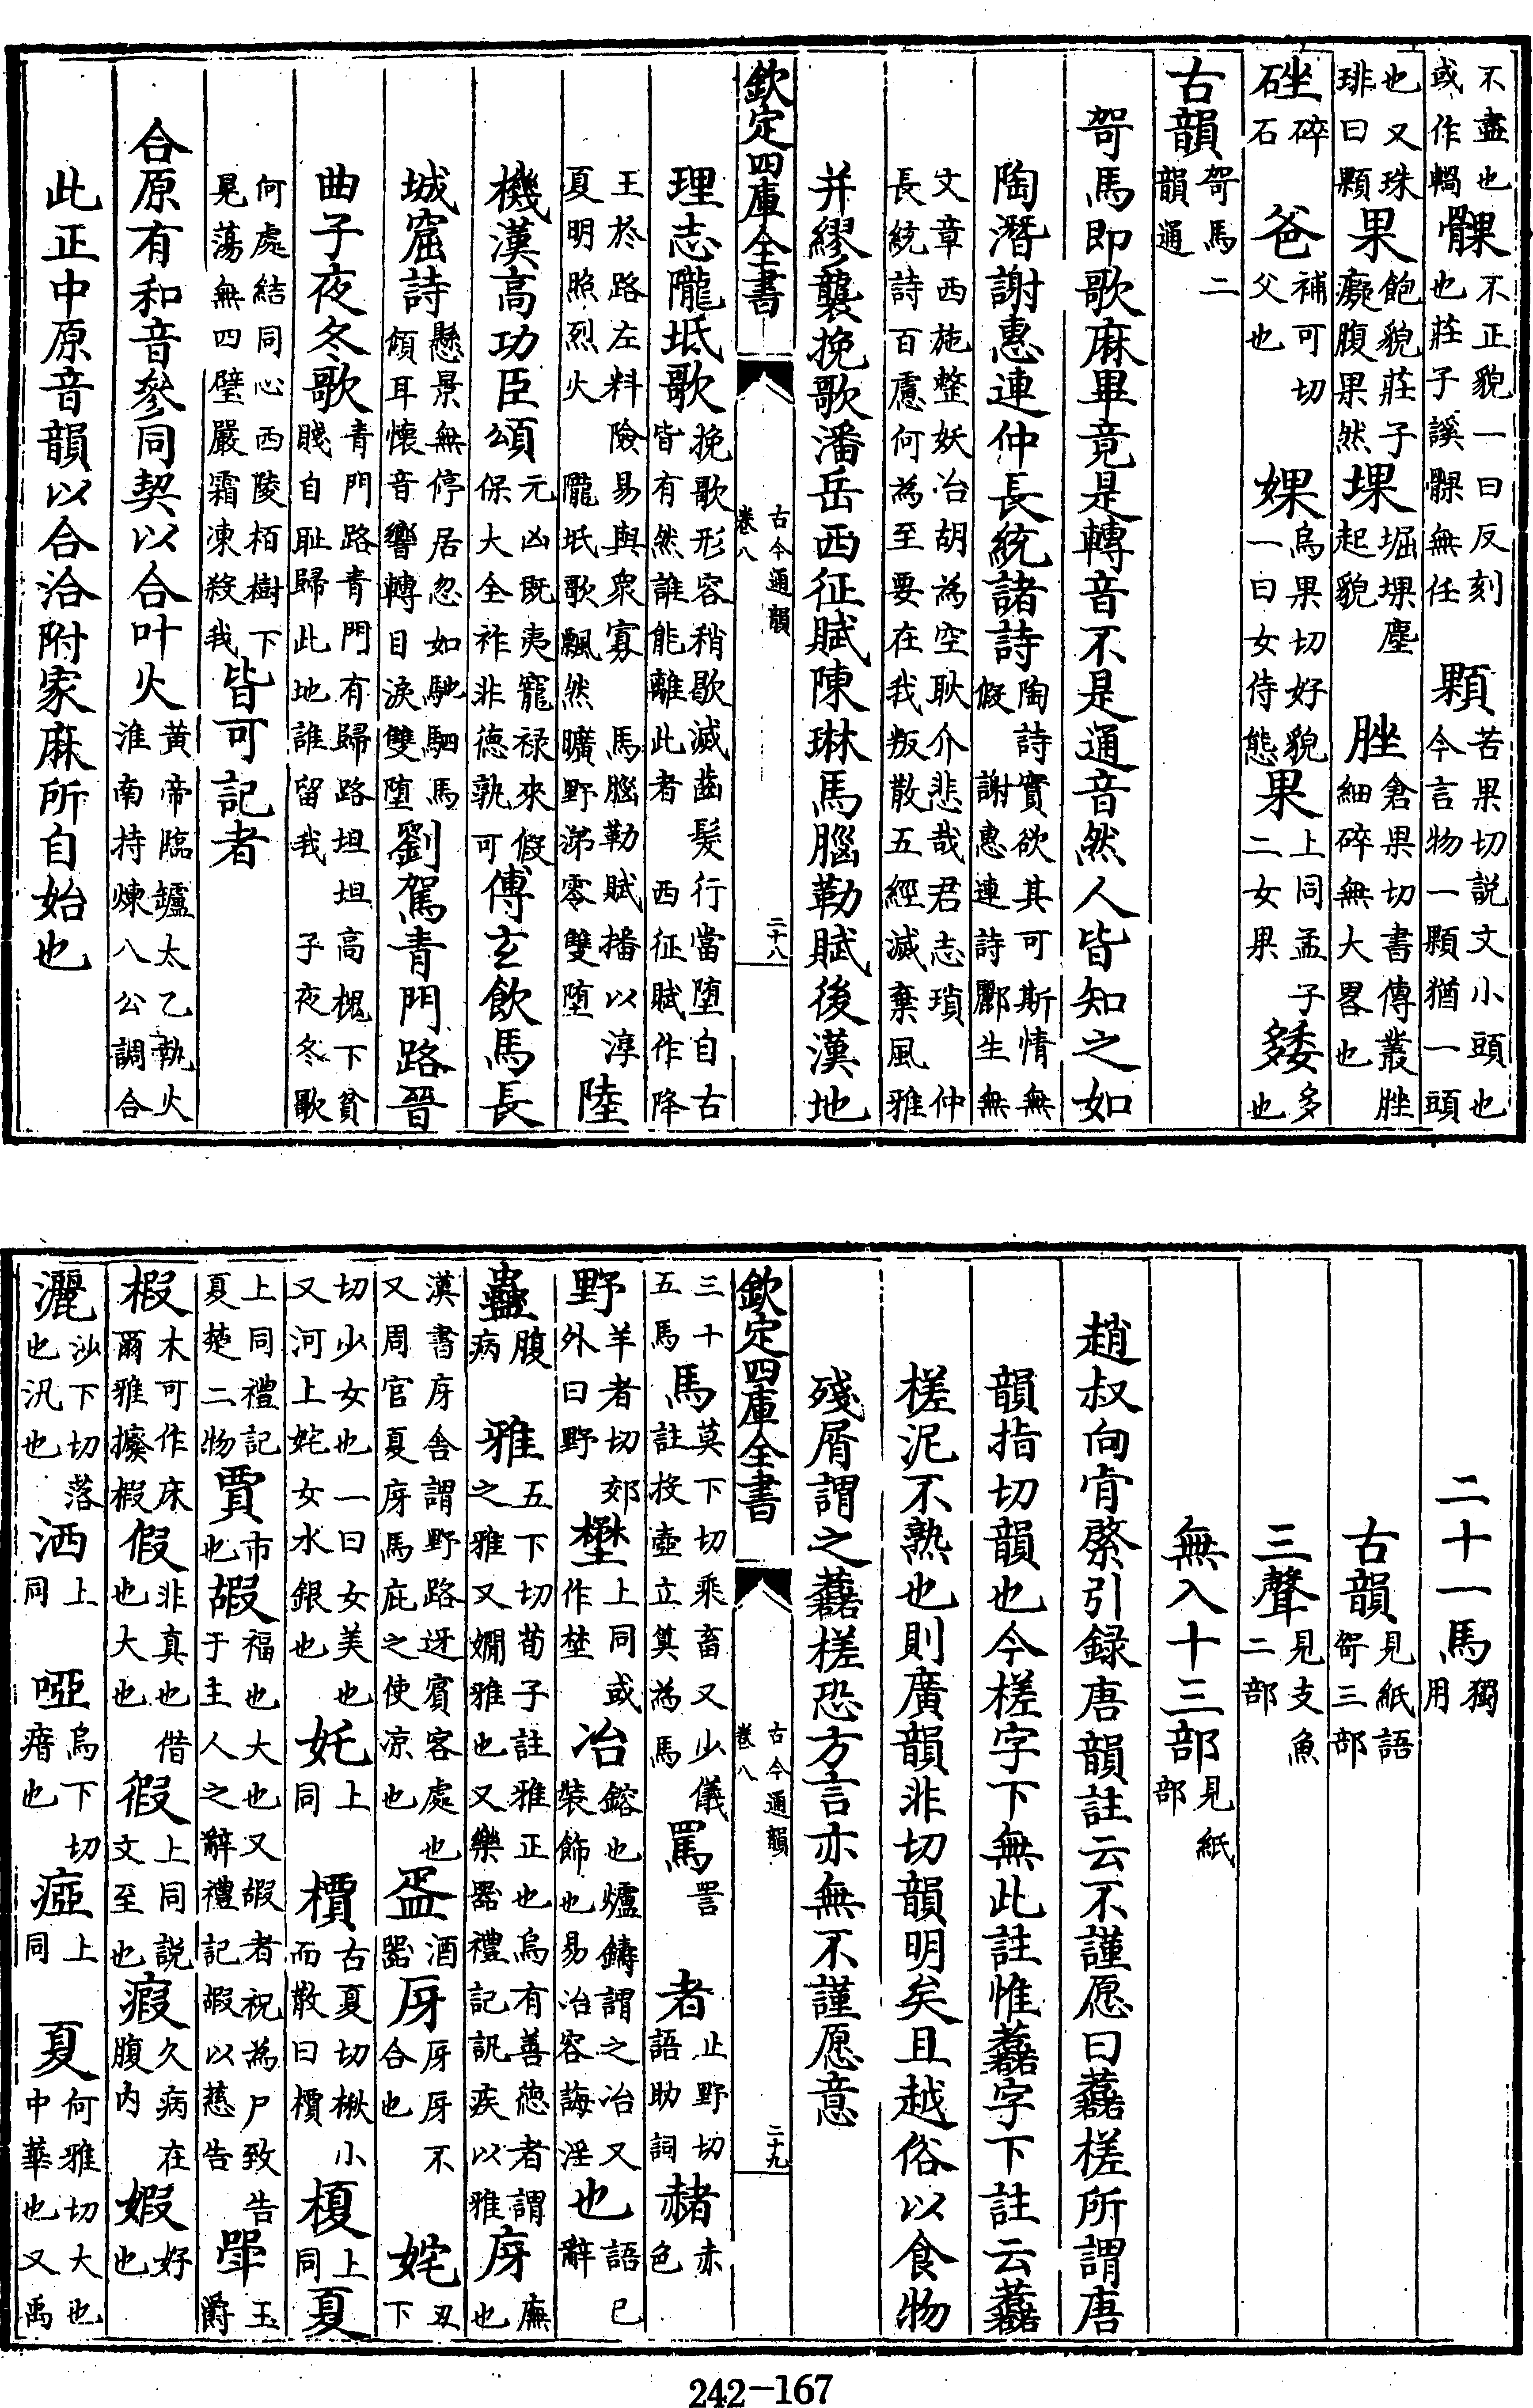 不盡也或作輠髁不正貌一曰反刻也莊子謑髁無任顆苦果切説文小頭也今言物一顆猶一頭
也又珠琲曰顆果飽貌莊子癡腹果然堁堀堁塵起貌脞倉果切書傳叢脞細碎無大畧也
硰碎石爸補可切父也婐烏果切好貌一曰女侍態果上同孟子二女果㛂多也
古韻哿馬二韻通
哿馬即歌麻畢竟是轉音不是通音然人皆知之如
陶潛謝惠連仲長統諸詩陶詩實欲其可斯情無假謝惠連詩酈生無
文章西施整妖冶胡為空耿介悲哉君志瑣仲長統詩百慮何為至要在我叛散五經滅棄風雅
并繆襲挽歌潘岳西征賦陳琳馬腦勒賦後漢地
欽定四庫全書 古今通韻 卷八 二十八
理志隴坻歌挽歌形容稍歇滅齒髮行當墮自古皆有然誰能離此者西征賦作降
王於路左料險易與衆寡馬腦勒賦播以淳夏明照烈火隴坻歌飄然曠野涕零雙墮陸
機漢高功臣頌元凶既夷寵禄來假保大全祚非德孰可傅玄飲馬長
城窟詩懸景無停居忽如馳駟馬傾耳懷音響轉目淚雙墮劉駕青門路晉
曲子夜冬歌青門路青門有歸路坦坦高槐下貧賤自耻歸此地誰留我子夜冬歌
何處結同心西陵栢樹下晃蕩無四壁嚴霜凍殺我皆可記者
合原有和音參同契以合叶火黃帝臨罏太乙執火淮南持煉八公調合
此正中原音韻以合洽附家麻所自始也
二十一馬獨用
古韻見紙語哿三部
三聲見支魚二部
無入十三部見紙部
趙叔向肯綮引録唐韻註云不謹愿曰藞槎所謂唐
韻指切韻也今槎字下無此註惟藞字下註云藞
槎泥不熟也則廣韻非切韻明矣且越俗以食物
殘屑謂之藞槎恐方言亦無不謹愿意
欽定四庫全書 古今通韻 卷八 二十九
三十五馬馬莫下切乘畜又少儀註投壺立筭為馬罵詈者止野切語助詞赭赤色
野羊者切郊外曰野埜上同或作埜冶鎔也爐鑄謂之冶又裝飾也易冶容誨淫也語已辭
蠱腹病雅五下切荀子註雅正也烏有善德者謂之雅又嫺雅也又樂器禮記訊疾以雅庌廡也
漢書庌舍謂野路迓賓客處也又周官夏庌馬庇之使凉也盃酒器厊厊厊不合也姹丑下
切少女也一曰女美也又河上姹女水銀也奼上同檟古夏切楸小而散曰檟榎上同夏
上同禮記夏楚二物賈市也嘏福也大也又嘏者祝為尸致告于主人之辭禮記嘏以慈告斝玉爵
椵木可作床爾雅櫠椵假非真也借也大也徦上同説文至也瘕久病在腹内婽好也
灑沙下切落也汛也洒上同啞烏下切瘖也瘂上同夏何雅切大也中華也又禹
242-167